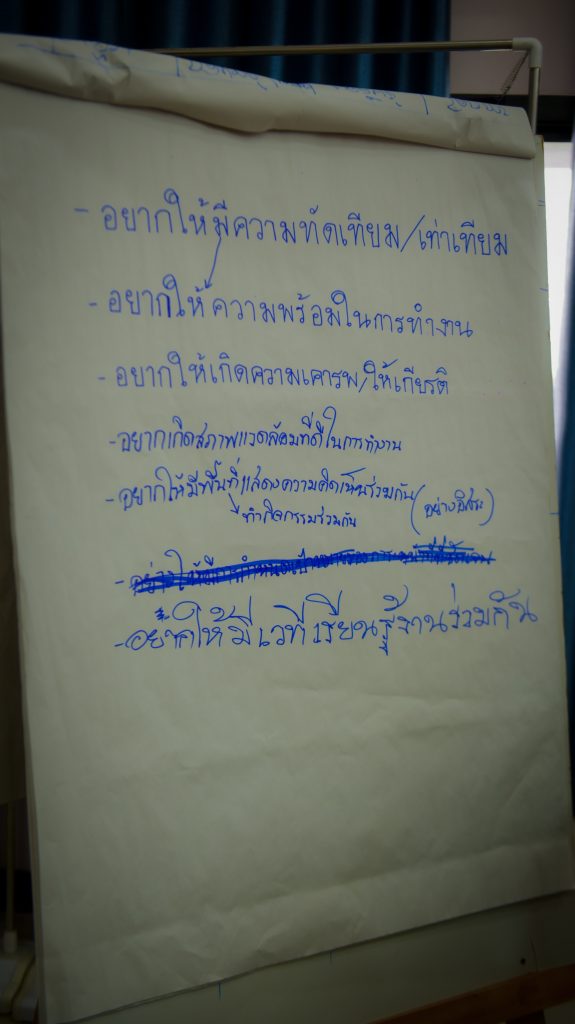 - อยากให้มีความทัดเทียม/เท่าเทียม
- อยากให้ความพร้อมในการทำงาน
- อยากให้เกิดความเคารพ/ให้เกียรติ
- อยากเกิดสภาพแวดล้อมที่ดีในการทำงาน
- อยากให้มีพื้นที่แสดงความคิดเห็นร่วมกัน (อย่างอิสระ)
ทำกิจกรรมร่วมกัน
- อยากให้มีเวทีเรียนรู้งานร่วมกัน